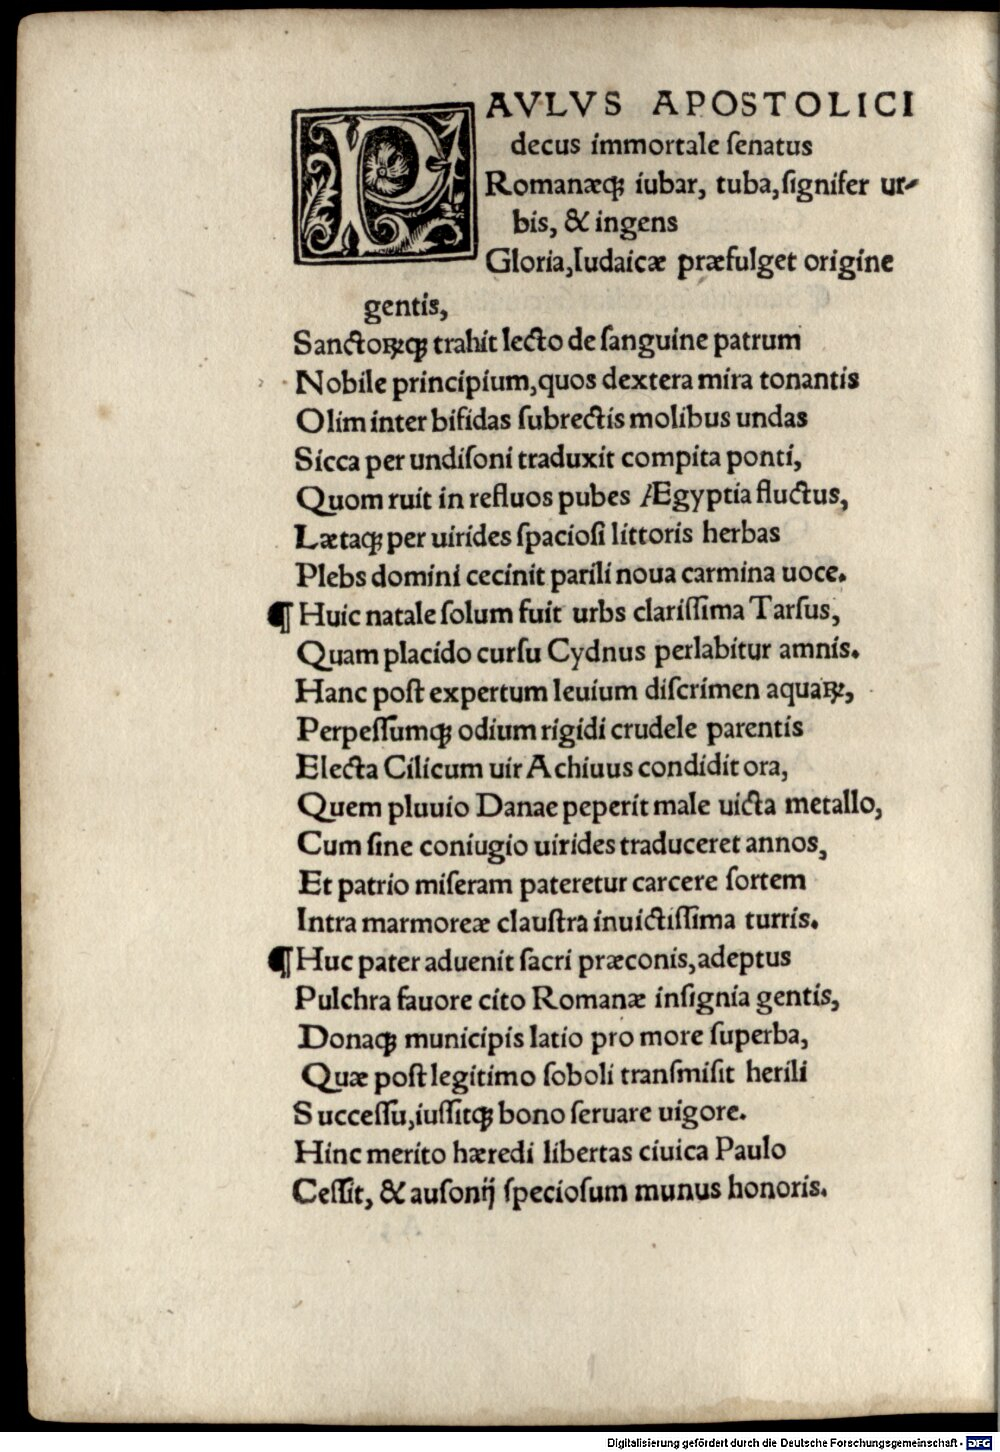 PAVLVS APOSTOLICI
decus immortale ſenatus
Romanæqꝫ iubar, tuba, ſignifer ur-
bis, & ingens
Gloria, Iudaicæ præfulget origine
gentis,
Sanctoꝝqꝫ trahit lecto de ſanguine patrum
Nobile principium, quos dextera mira tonantis
Olim inter bifidas ſubrectis molibus undas
Sicca per undiſoni traduxit compita ponti,
Quom ruit in refluos pubes Ægyptia fluctus,
Lætaqꝫ per uirides ſpacioſi littoris herbas
Plebs domini cecinit parili noua carmina uoce.
¶ Huic natale ſolum fuit urbs clariſſima Tarſus,
Quam placido curſu Cydnus perlabitur amnis.
Hanc poſt expertum leuium diſcrimen aquaꝝ,
Perpeſſumqꝫ odium rigidi crudele parentis
Electa Cilicum uir Achiuus condidit ora,
Quem pluuio Danae peperit male uicta metallo,
Cum ſine coniugio uirides traduceret annos,
Et patrio miſeram pateretur carcere ſortem
Intra marmoreæ clauſtra inuictiſſima turris.
¶ Huc pater aduenit ſacri præconis, adeptus
Pulchra fauore cito Romanæ inſignia gentis,
Donaqꝫ municipis latio pro more ſuperba,
Quæ poſt legitimo ſoboli tranſmiſit herili
Succeſſu, iuſſitqꝫ bono ſeruare uigore.
Hinc merito hæredi libertas ciuica Paulo
Ceſſit, & auſonij ſpecioſum munus honoris.
Digitalisierung gefördert durch die Deutsche Forschungsgemeinschaft - DFG